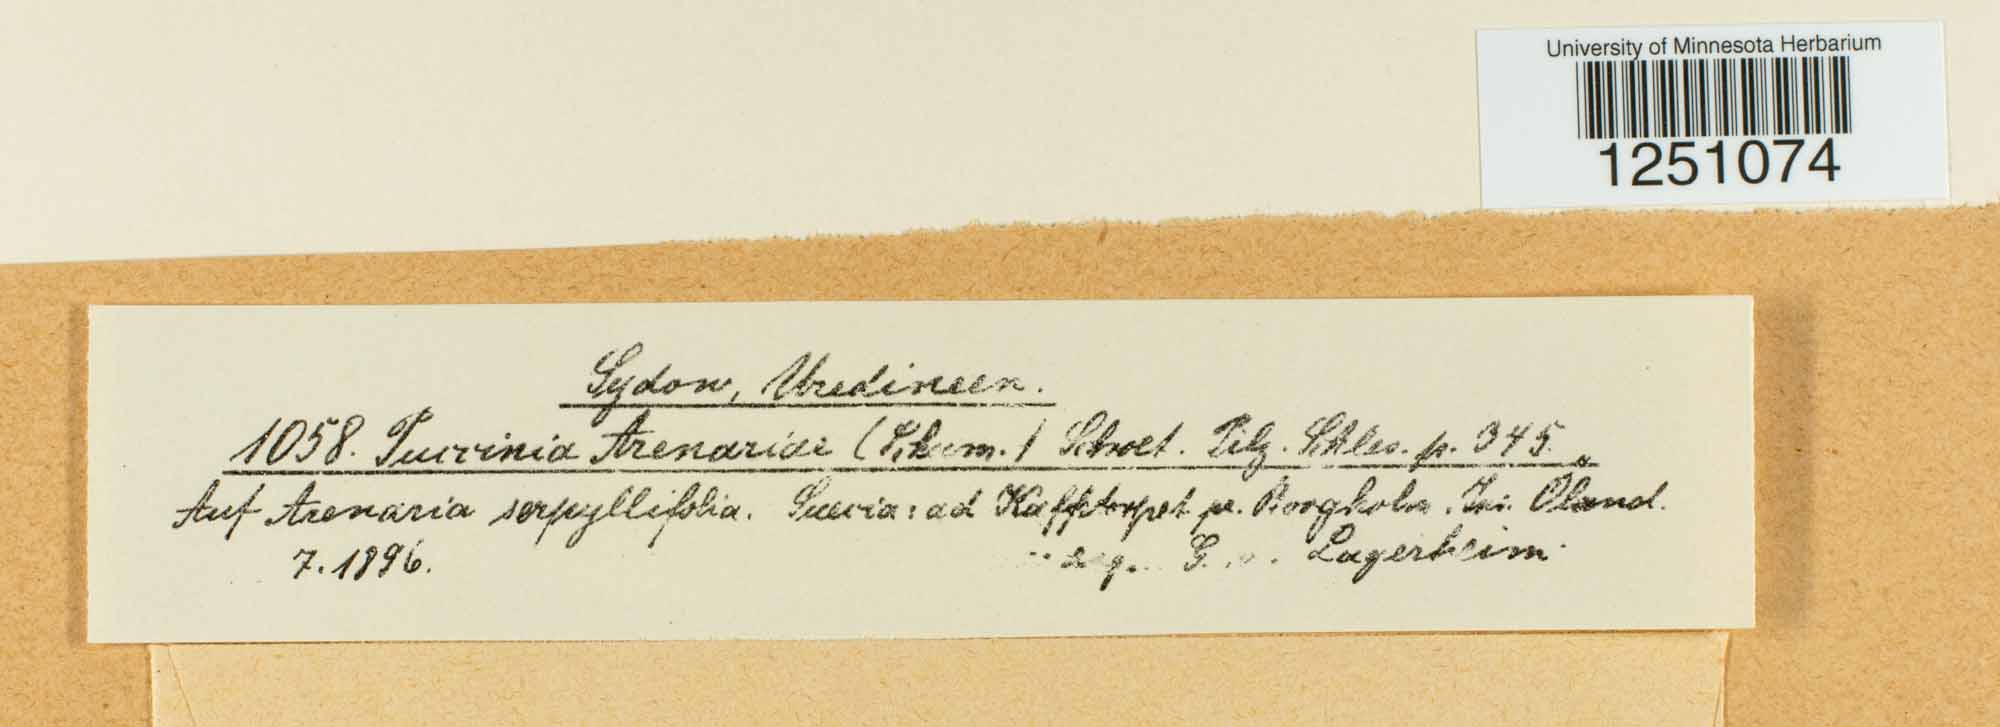 University of Minnesota Herbarium
1251074
Sydow, Uredineen.
1058. Puccinia Arenariae (Schum.) Schroet. Pilz. Schles. p. 345.
Auf Arenaria serpyllifolia. Suecia: ad pr. Borgholm. Ins. Öland.
7. 1896. leg. G. v. Lagerheim.